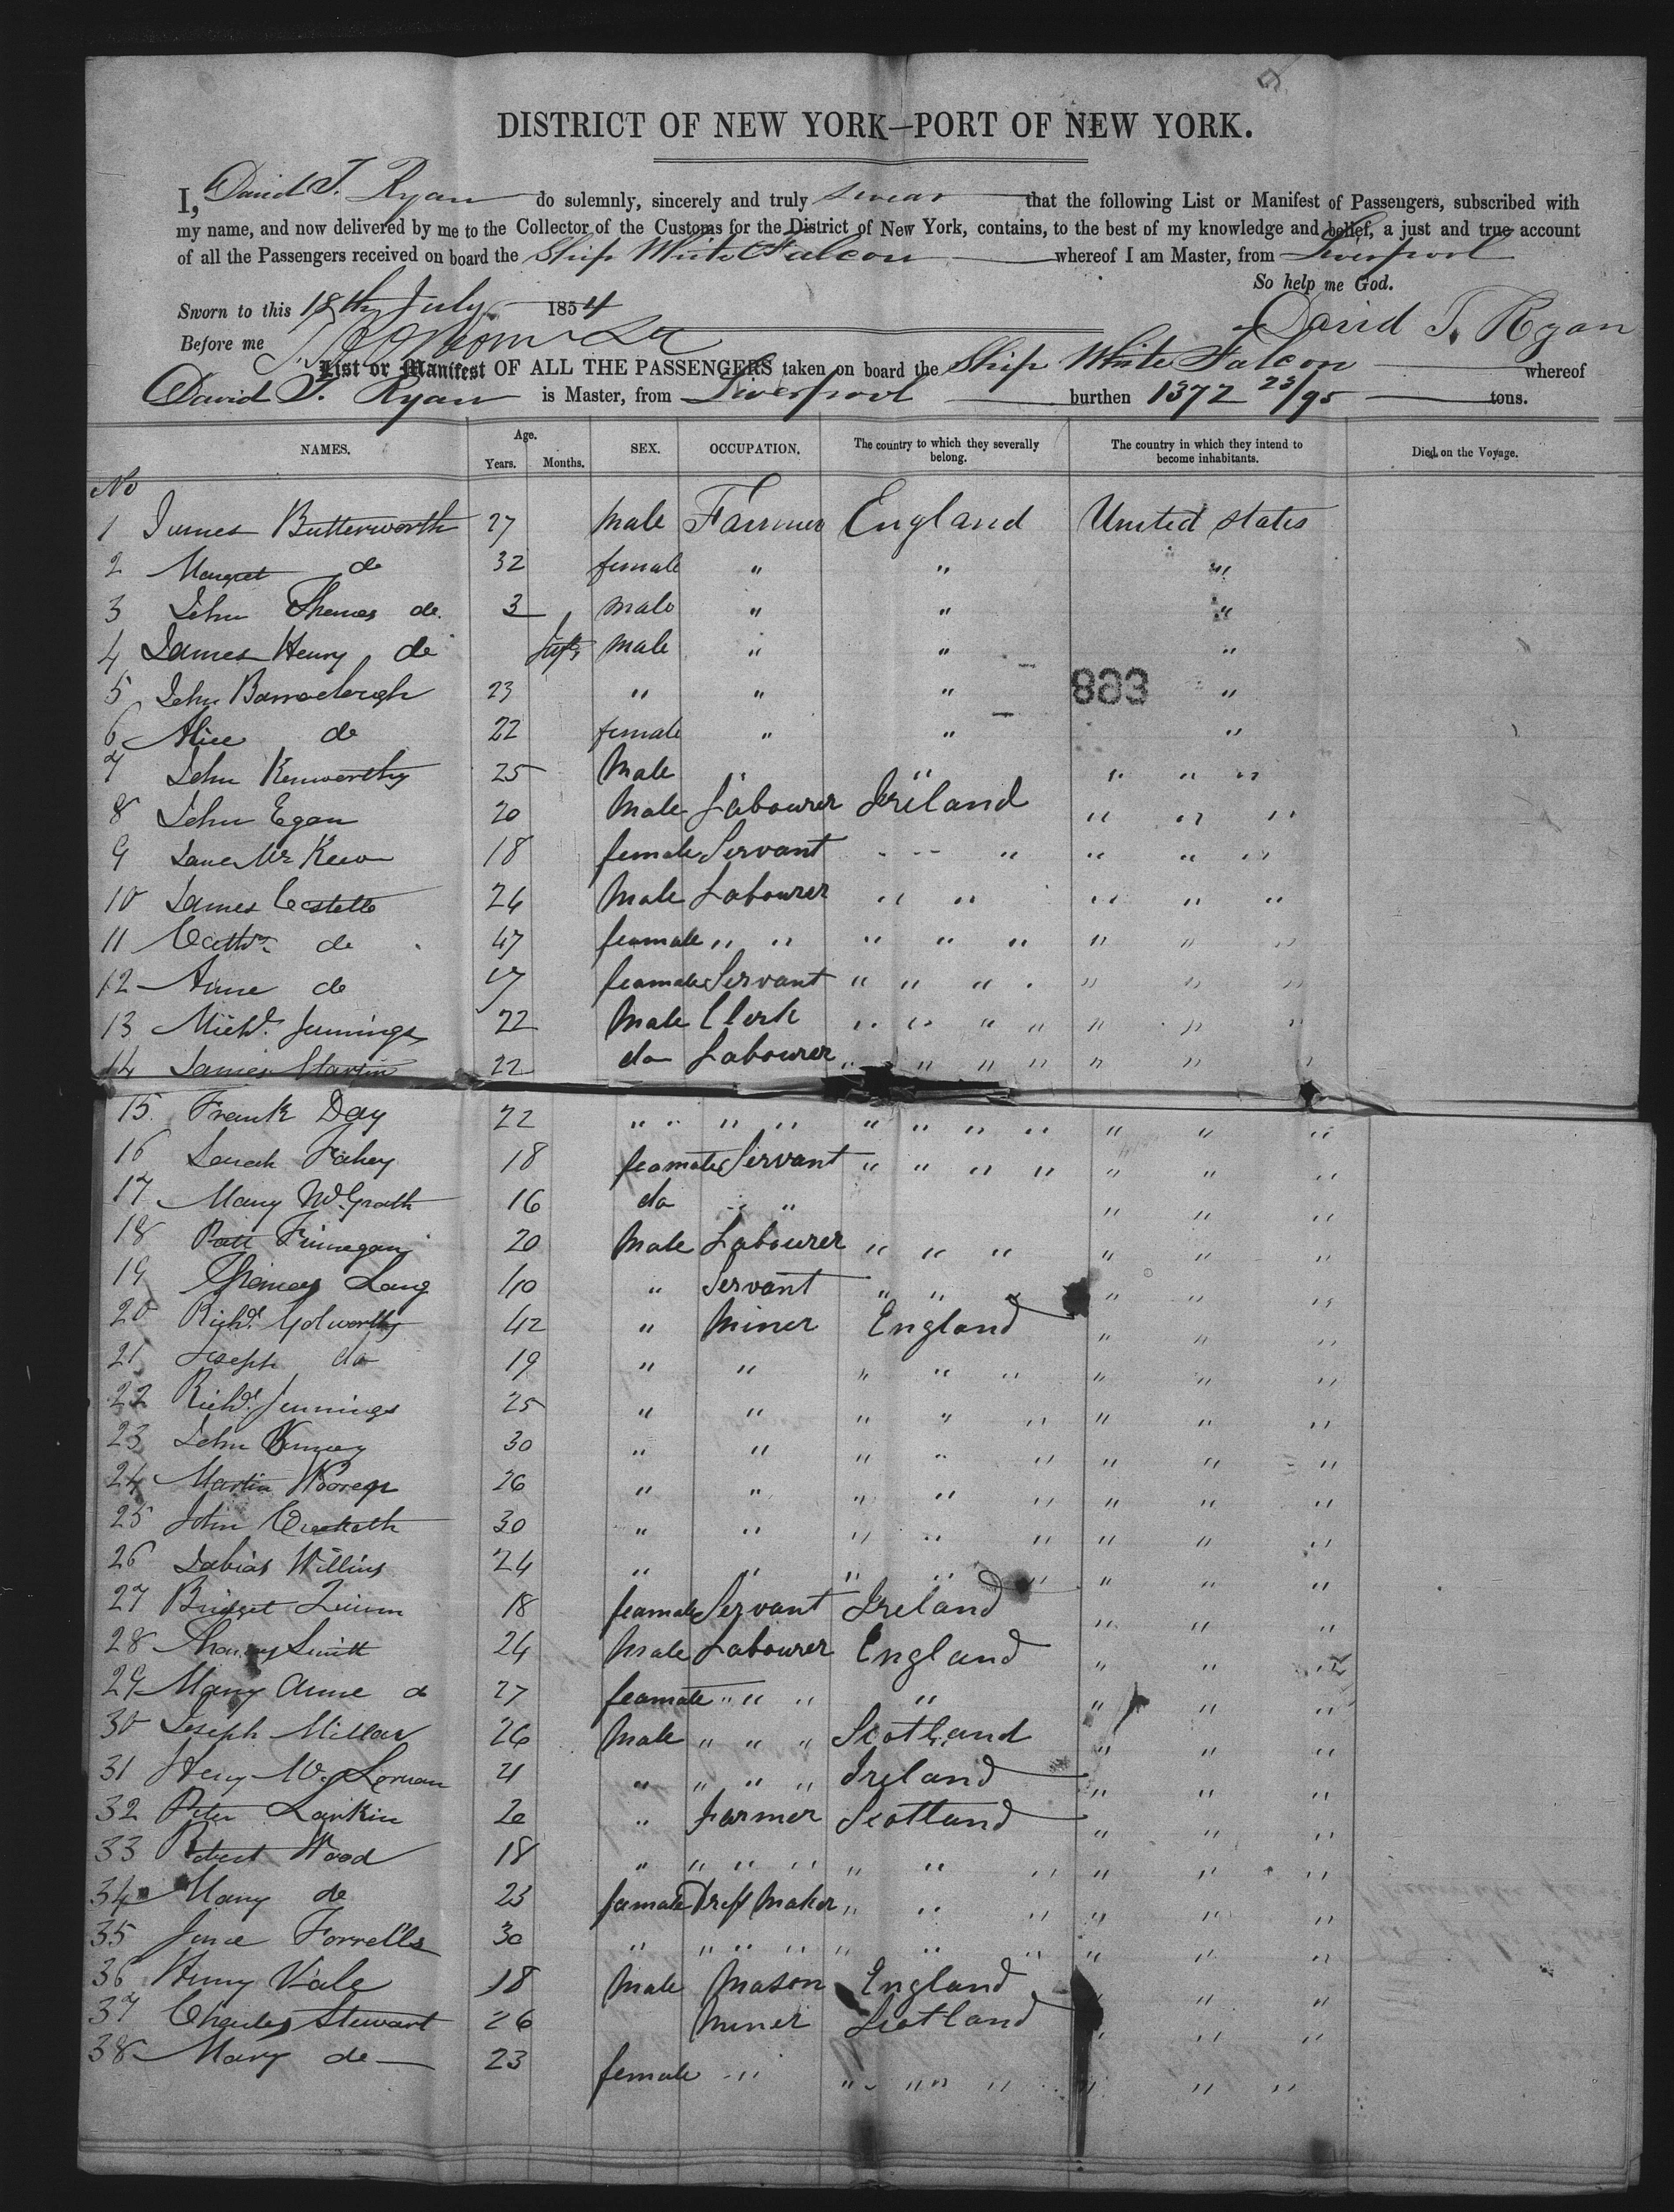 DISTRICT OF NEW YORK—PORT OF NEW YORK.
I, David T. Ryan do solemnly, sincerely and truly swear that the following List or Manifest of Passengers, subscribed with
my name, and now delivered by me to the Collector of the Customs for the District of New York, contains, to the best of my knowledge and belief, a just and true account
of all the Passengers received on board the Ship White Falcon whereof I am Master, from Liverpool
So help me God.
Sworn to this 18th July 1854
David T. Ryan
Before me
List or Manifest OF ALL THE PASSENGERS taken on board the Ship White Falcon whereof
David T. Ryan is Master, from Liverpool burthen 1372 23/95 tons.
NAMES. Age. Years. Months. SEX. OCCUPATION. The country to which they severally belong. The country in which they intend to become inhabitants. Died on the Voyage.
No
1 James Butterworth 27 Male Farmer England United States
2 Margret do 32 female " " "
3 John Thomas do. 3 male " " "
4 James Henry do male " " "
5 John Barraclough 23 " " " 893 "
6 Alice do 22 female " " "
7 John Kenworthy 25 Male " " " " "
8 John Egan 20 Male Labourer Ireland " " "
9 Jane 18 female Servant " " " "
10 James Costello 24 Male Labourer " " " " "
11 Cathn do 47 feamale " " " " " " " "
12 Anne do 17 feamale Servant " " " " " "
13 Michl. Jennings 22 Male Clerk " " " " " " "
14 James Martin 22 do Labourer " " " " " " "
15. Frank Day 22 " " " " " " " " " " "
16 Sarah Fahey 18 feamale Servant " " " " " " "
17 Mary McGrath 16 do " " " " "
18 Patt Finnegan 20 Male Labourer " " " " " "
19 Thomas Lang 40 " Servant " " " " " "
20 Richd. Golworthy 42 " Miner England " " "
21 Joseph do 19 " " " " " " " "
22 Richd. Jennings 25 " " " " " " " "
23 John 30 " " " " " " " "
24 Martin 26 " " " " " " " "
25 John 30 " " " " " " " "
26 Tobias Willins 24 " " " " " " " "
27 Bridget 18 feamale Servant Ireland " " "
28 Thomas Smith 24 Male Labourer England " " "
29 Mary Anne do 27 feamale " " " " " " "
30 Joseph Millar 26 Male " " " Scotland " " "
31 21 " " " " Ireland " " "
32 Peter Larkin 20 " Farmer Scotland " " "
33 Robert Wood 18 " " " " " " " " " "
34 Mary do 23 famale Dress Maker " " " " " "
35 Jane Forrells 30 " " " " " " " " " "
36 Henry Vale 18 Male Mason England " "
37 Charles Stewart 26 Miner Scotland " " "
38 Mary do 23 female " " " " " " " "